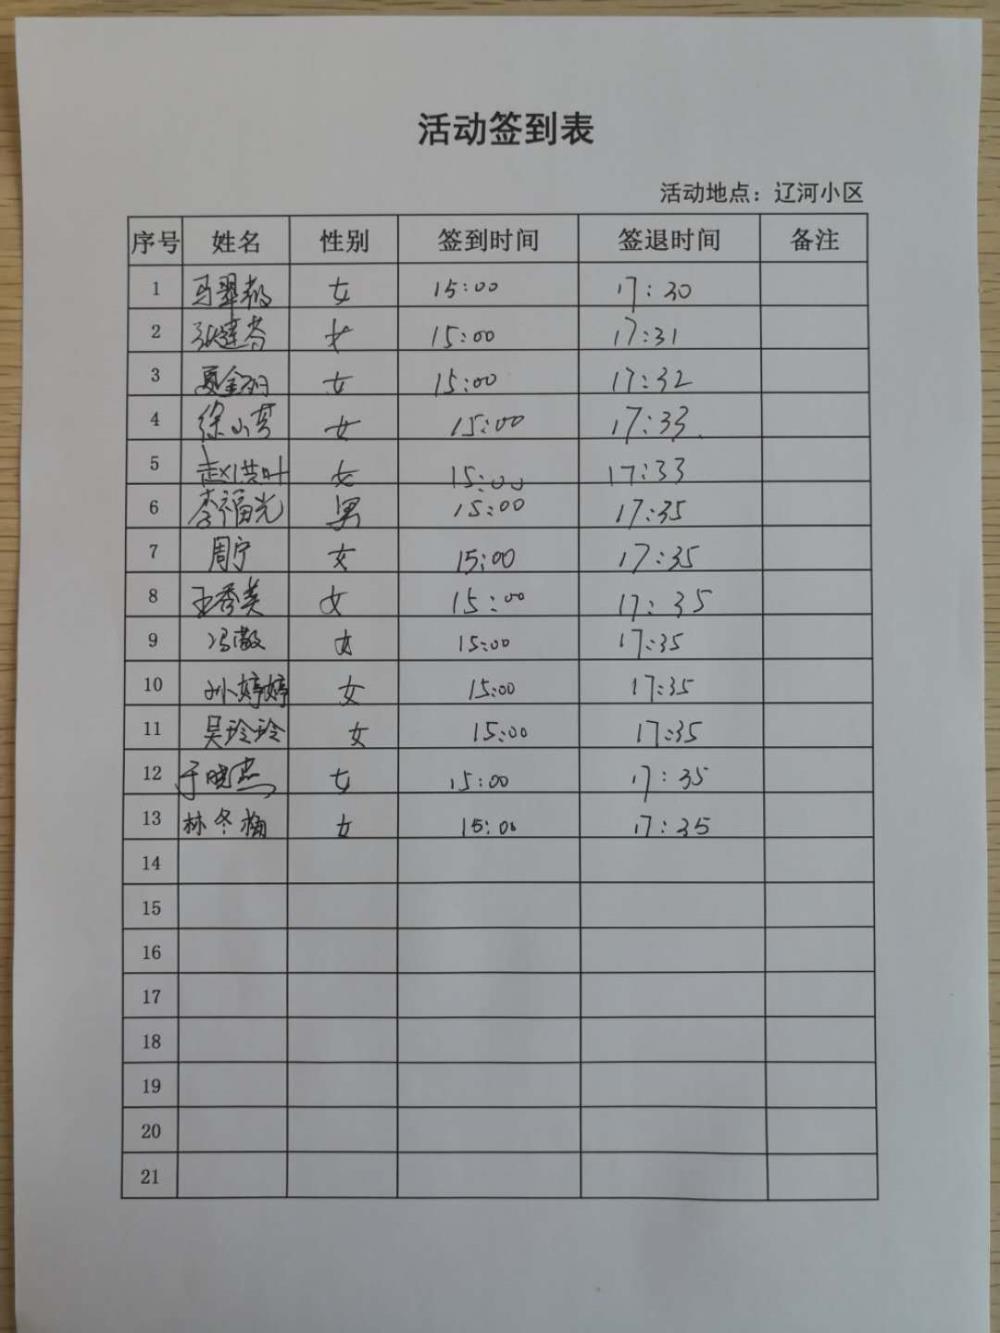 活动签到表
活动地点：辽河小区
序号 姓名 性别 签到时间 签退时间 备注
1 马翠 女 15:00 17:30
2 张建 女 15:00 17:31
3 夏金 女 15:00 17:32
4 徐 女 15:00 17:33
5 赵洪叶 女 15:00 17:33
6 李福光 男 15:00 17:35
7 周宁 女 15:00 17:35
8 王秀英 女 15:00 17:35
9 冯敬 女 15:00 17:35
10 孙婷婷 女 15:00 17:35
11 吴玲玲 女 15:00 17:35
12 于晓杰 女 15:00 17:35
13 林冬梅 女 15:00 17:35
14
15
16
17
18
19
20
21